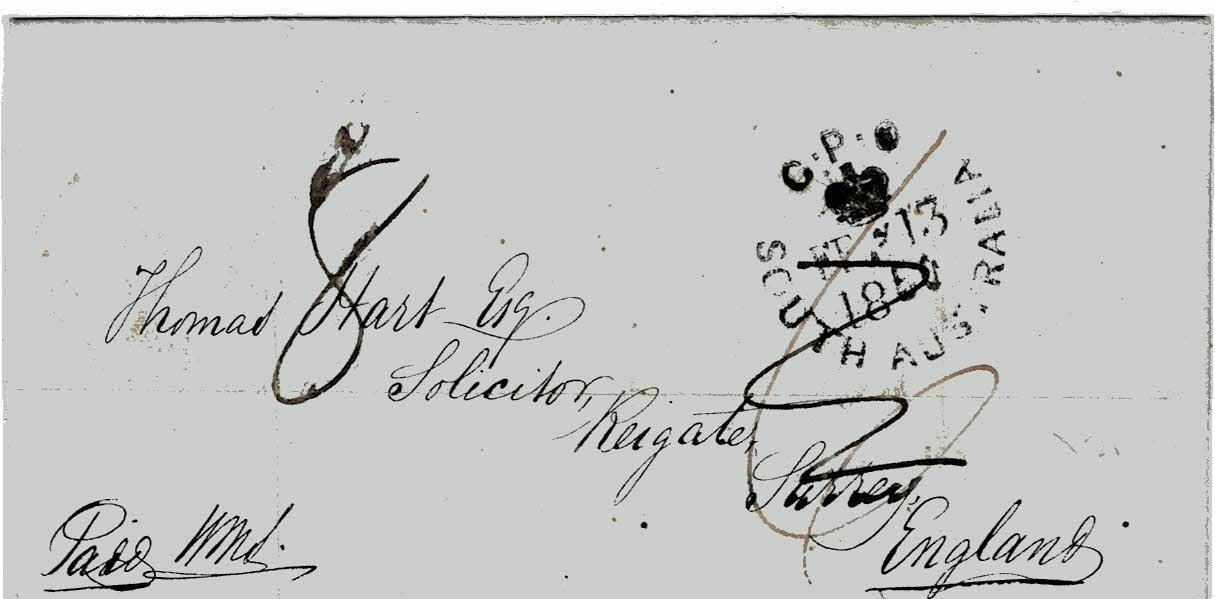 G.P.O
SOUTH AUSTRALIA
13
8
Thomas Hart Esq.
Solicitor,
Reigate,
Surrey,
England
Paid